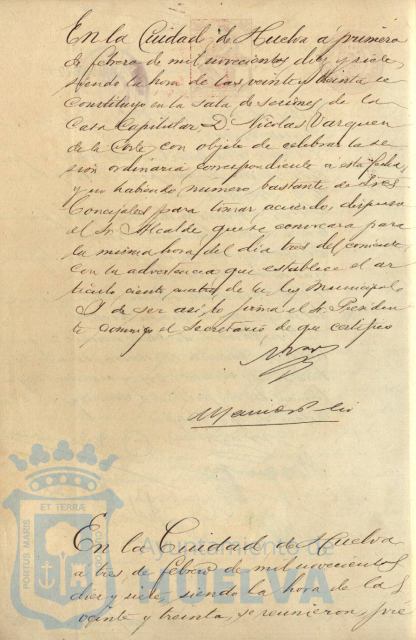 En la Ciudad de Huelva á primero
de febrero de mil novecientos diez y siete,
siendo la hora de las veinte y treinta se
constituyo en la sala de sesiones de la
Casa Capitular, D. Nicolas Vazquez
de la Corte, con objeto de celebrar la se-
sión ordinaria correspondiente a esta fecha,
y no habiendo numero bastante de Sres
Concejales para tomar acuerdo, dispuso
el Sr. Alcalde que se convocara para
la misma hora del dia tres del corriente
con la advertencia que establece el ar-
ticulo ciento cuatro de la ley Municipal.
Y de ser así, lo firma el Sr. Presiden
te conmigo el Secretario de que certifico
En la Ciudad de Huelva
a tres de febrero de mil novecientos
diez y siete, siendo la hora de las
veinte y treinta, se reunieron
PORTUS MARIS
ET TERRÆ
Ayuntamiento de
HUELVA